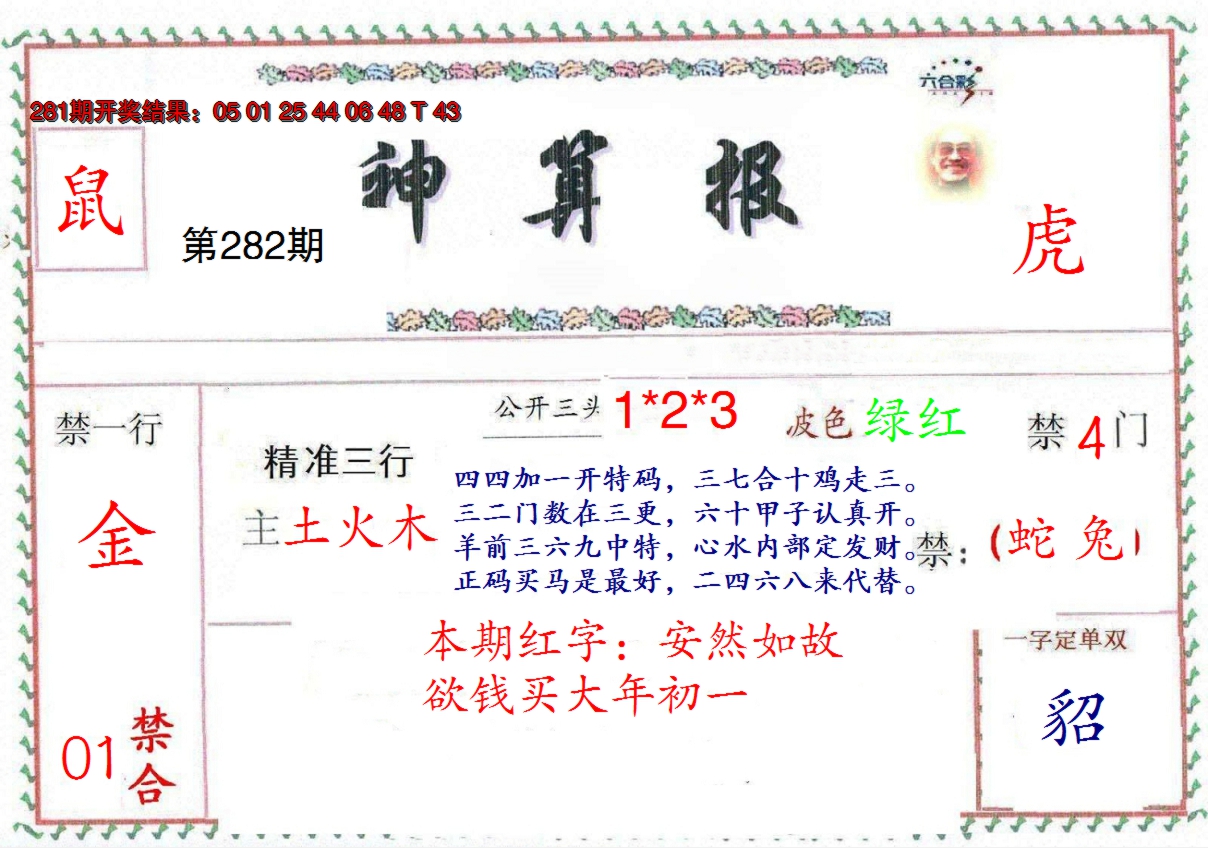 六合彩
281期开奖结果：05 01 25 44 06 48 T 43
神算报
鼠
第282期
虎
公开三头 1*2*3
波色 绿红
禁4门
禁一行
金
精准三行
主土火木
四四加一开特码，三七合十鸡走三。
三二门数在三更，六十甲子认真开。
羊前三六九中特，心水内部定发财。
正码买马是最好，二四六八来代替。
禁：(蛇 兔)
本期红字：安然如故
欲钱买大年初一
一字定单双
貂
01 禁合